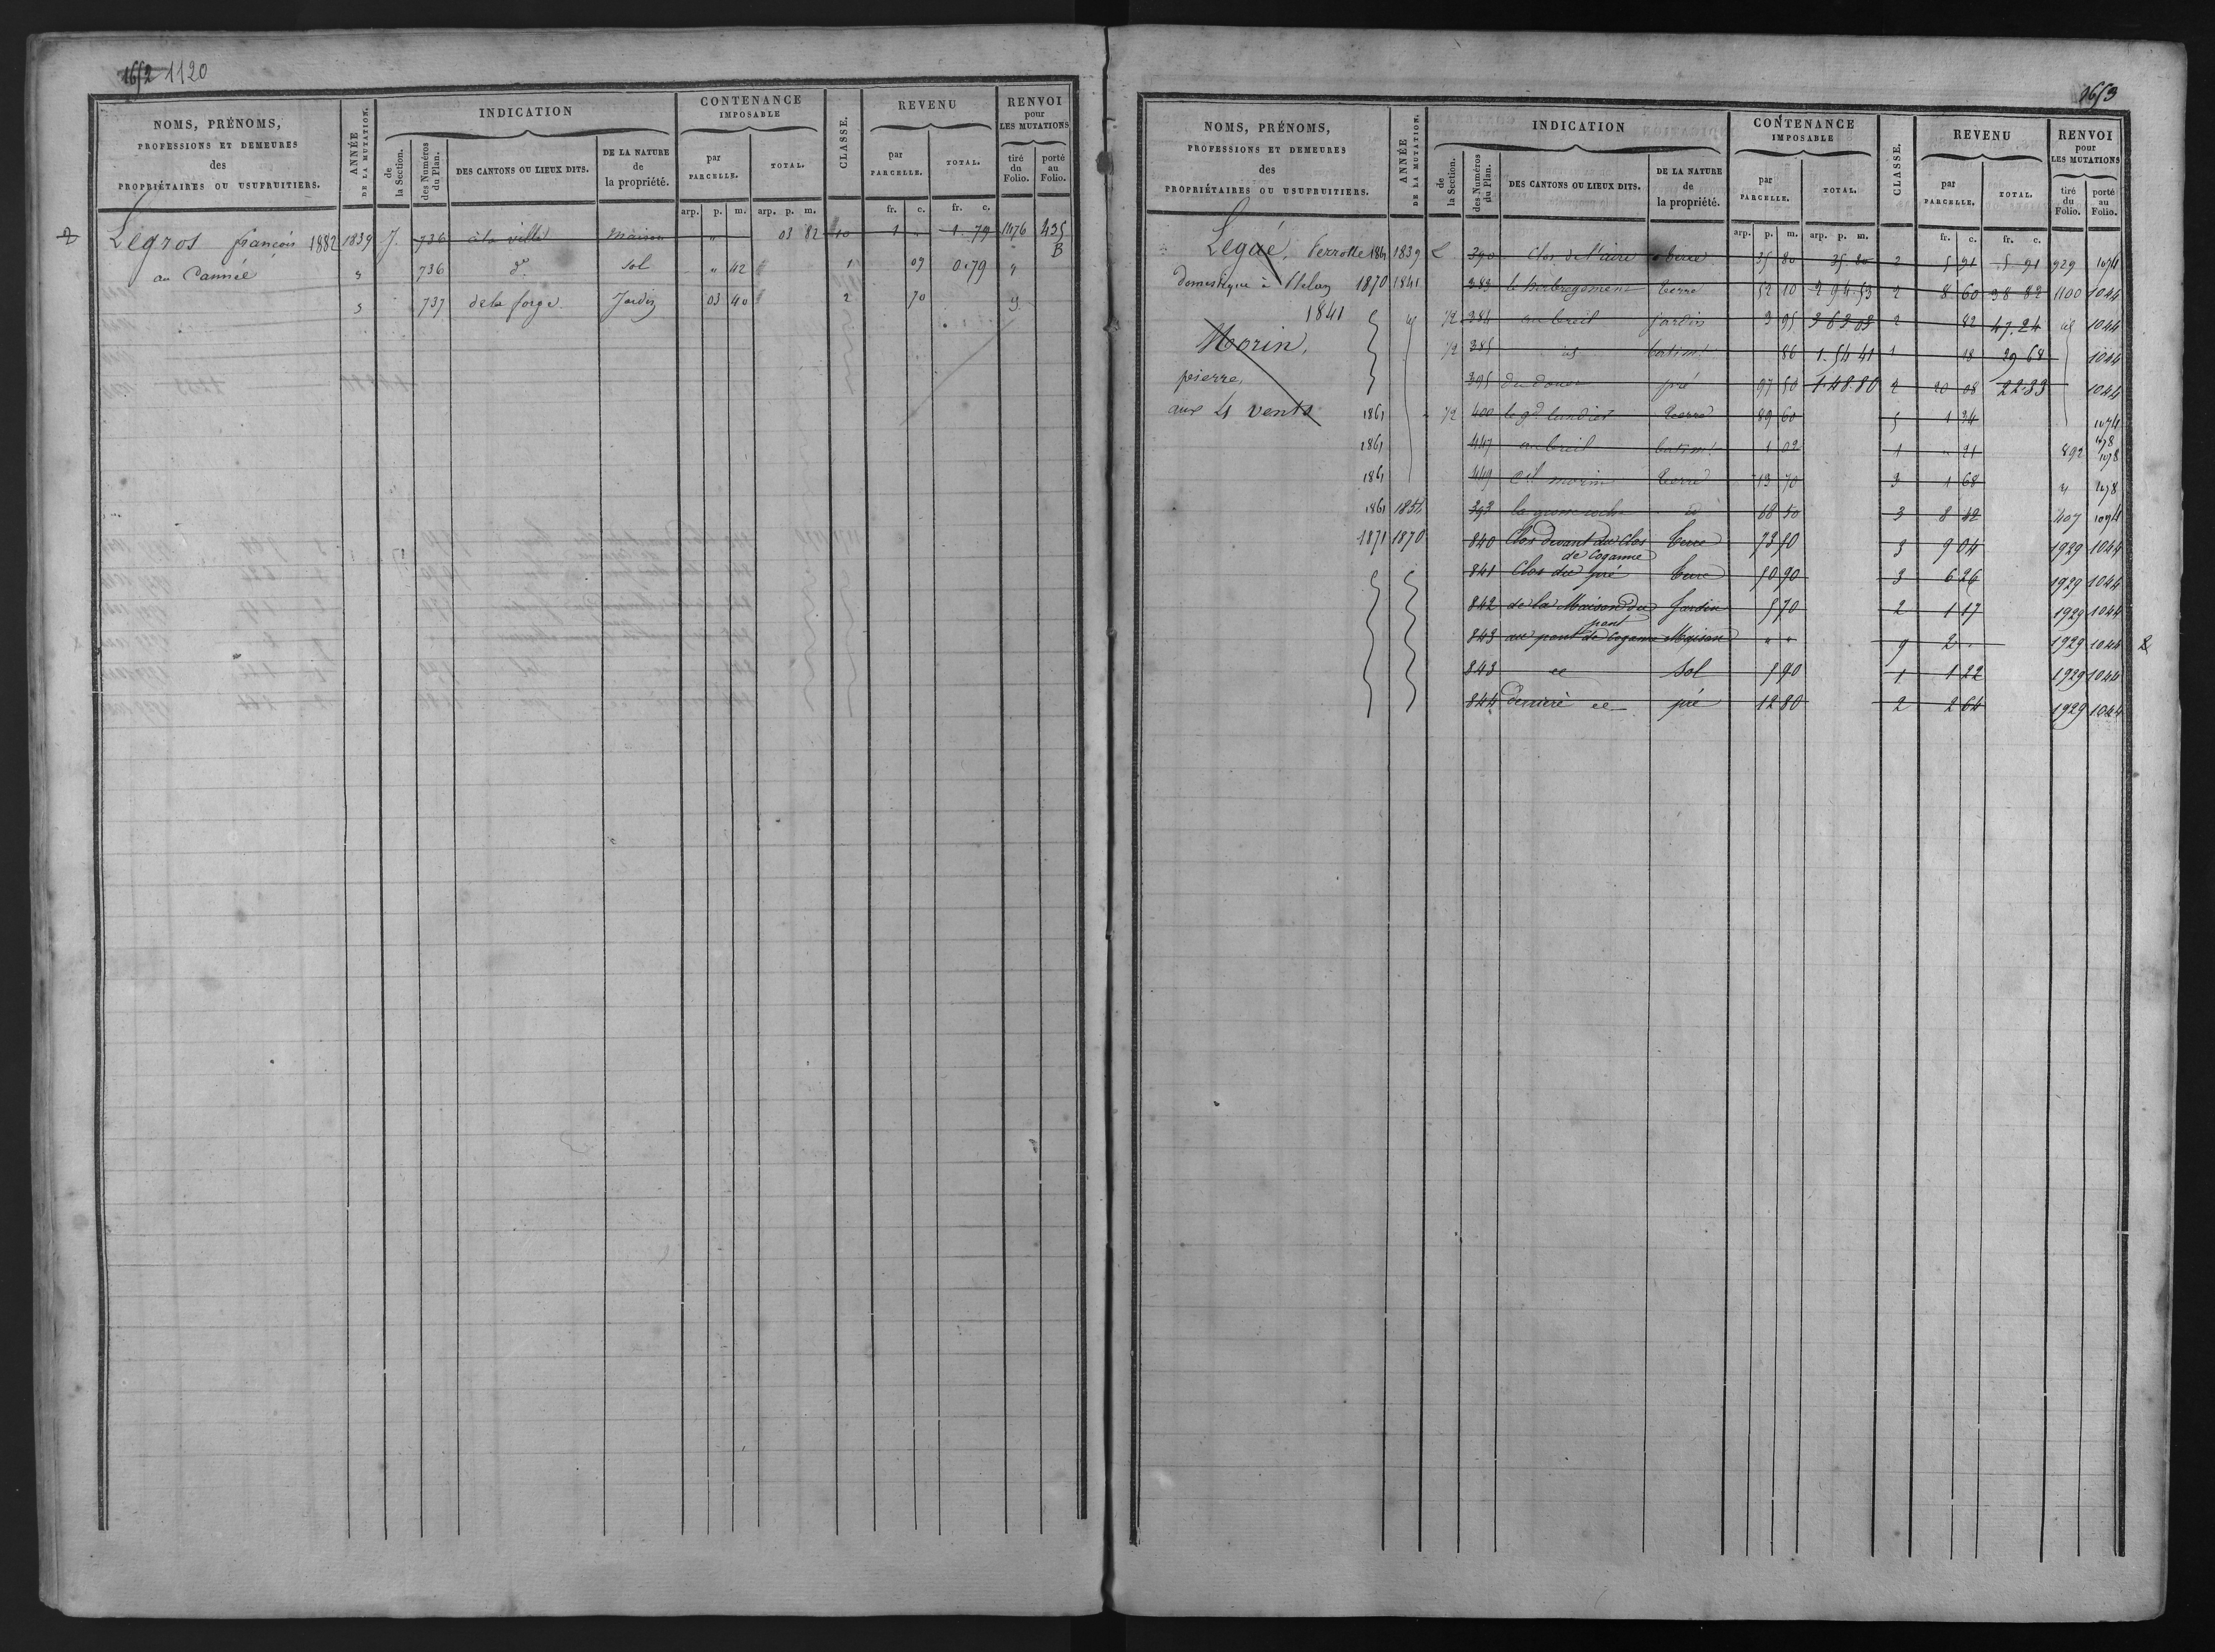 1652 1120
NOMS, PRÉNOMS,
PROFESSIONS ET DEMEURES
des
PROPRIÉTAIRES OU USUFRUITIERS.
ANNÉE
DE LA MUTATION.
INDICATION
de
la Section.
des Numéros
du Plan.
DES CANTONS OU LIEUX DITS.
DE LA NATURE
de
la propriété.
CONTENANCE
IMPOSABLE
par
PARCELLE.
TOTAL.
CLASSE.
REVENU
par
PARCELLE.
TOTAL.
RENVOI
pour
LES MUTATIONS
tiré
du
Folio.
porté
au
Folio.
arp. p. m. arp. p. m. fr. c. fr. c.
2 Legros françois 1882 1839 J. 736 à la ville maison " 03 82 10 1 " 1.79 1176 435
B
au Cannée " 736 do. sol " 42 1 09 0.79 "
" 737 de la forge Jardin 03 40 2 70 "
1653
NOMS, PRÉNOMS,
PROFESSIONS ET DEMEURES
des
PROPRIÉTAIRES OU USUFRUITIERS.
ANNÉE
DE LA MUTATION.
INDICATION
de
la Section.
des Numéros
du Plan.
DES CANTONS OU LIEUX DITS.
DE LA NATURE
de
la propriété.
CONTENANCE
IMPOSABLE
par
PARCELLE.
TOTAL.
CLASSE.
REVENU
par
PARCELLE.
TOTAL.
RENVOI
pour
LES MUTATIONS
tiré
du
Folio.
porté
au
Folio.
arp. p. m. arp. p. m. fr. c. fr. c.
Legaé, Perrotte 1861 1839 L 390 Clos de l'aire terre 35 80 35 80 2 5 91 5 91 929 1074
domestique à 1870 1841 383 terre 52 10 2 94.53 2 8 60 38 82 1100 1044
1841 1/2 384 au breil jardin 3 95 3 63 03 2 82 47.24 id 1044
Morin, 1/2 385 id batimt 86 1.54 41 1 18 39 68 1044
pierre, 395 pré 97 50 1.48.80 2 20 08 22.33 1044
aux 4 vents 1861 1/2 400 le gd terre 89 60 5 1 34 1074
1861 447 au breil batimt 1 02 1 " 21 892 1078
1078
1861 449 morin terre 13 70 3 1 68 " 1078
1861 393 la grosse roche do 68 50 3 8 407 1074
1871 1870 840 Clos devant du Clos terre 73 90 3 9 04 1929 1044
de Coganne
841 Clos du pré terre 50 90 3 6 26 1929 1044
842 de la Maison du Jardin 5 70 2 1 17 1929 1044
pont
843 au pont de Coganne Maison " " 9 2 " 1929 1044 2
843 ee Sol 5 90 1 1 22 1929 1044
844 derrière ee pré 12 80 2 2 64 1929 1044